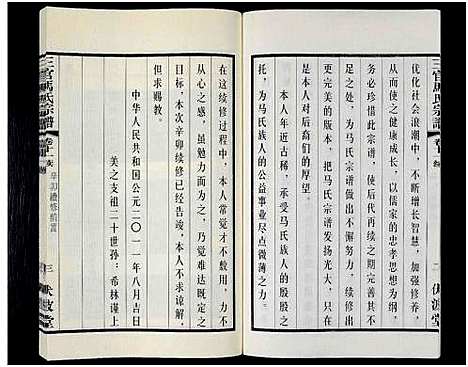 三官馬氏宗譜
卷十一 続
二 伏波堂
優化社会浪潮中，不断增长智慧，完善修养，
从而使之健康成长，以儒家的忠孝思想为纲，
务必珍惜此宗谱，使后代再续之期完善其不
足之处，使之继续发扬做出不懈努力，续出
更完美的版本，把马氏宗谱发扬光大，只在
是本人对后裔们的厚望。
本人年近古稀，承马氏族人的殷殷之
托，为马氏族人的公益事业尽点微薄之力，
在这续修过程中，本人常觉才不敷用，力不
从心之感，虽无数而为之，乃觉难达既成之
目标，本次辛卯续修已告竣，本人不求谅解，
但求赐教。
中华人民共和国公元二〇一一年八月吉日
美之支祖二十世孙：希林谨上
三官馬氏宗譜
卷十一 続
辛卯續修前言
三 伏波堂